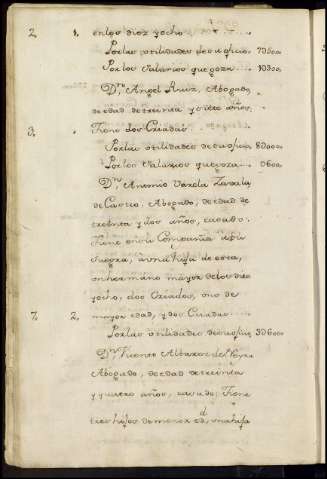 2, 1, en los diez y ocho
Por las utilidades de su oficio 7D500.
Por los Salarios que goza 1D300.
Dn. Angel Ruiz, Abogado,
de edad de treinta y siete años,
3, Tiene dos Criados
Por las utilidades de su oficio 8D000.
Por los Salarios que goza D600.
Dn. Antonio Varela
de Castro, Abogado, de edad de
treinta y dos años, casado.
Tiene en su Compañia a su
suegra, a una hija de esta,
un hermano mayor de los diez
y ocho, dos Criados, uno de
7, 2, mayor edad, y dos Criadas
Por las utilidades de su oficio 3D600.
Dn. Vicente Albarez de Neyra
Abogado, de edad de treinta
y quatro años, casado, Tiene
tres hijos de menor ed.d, una hija